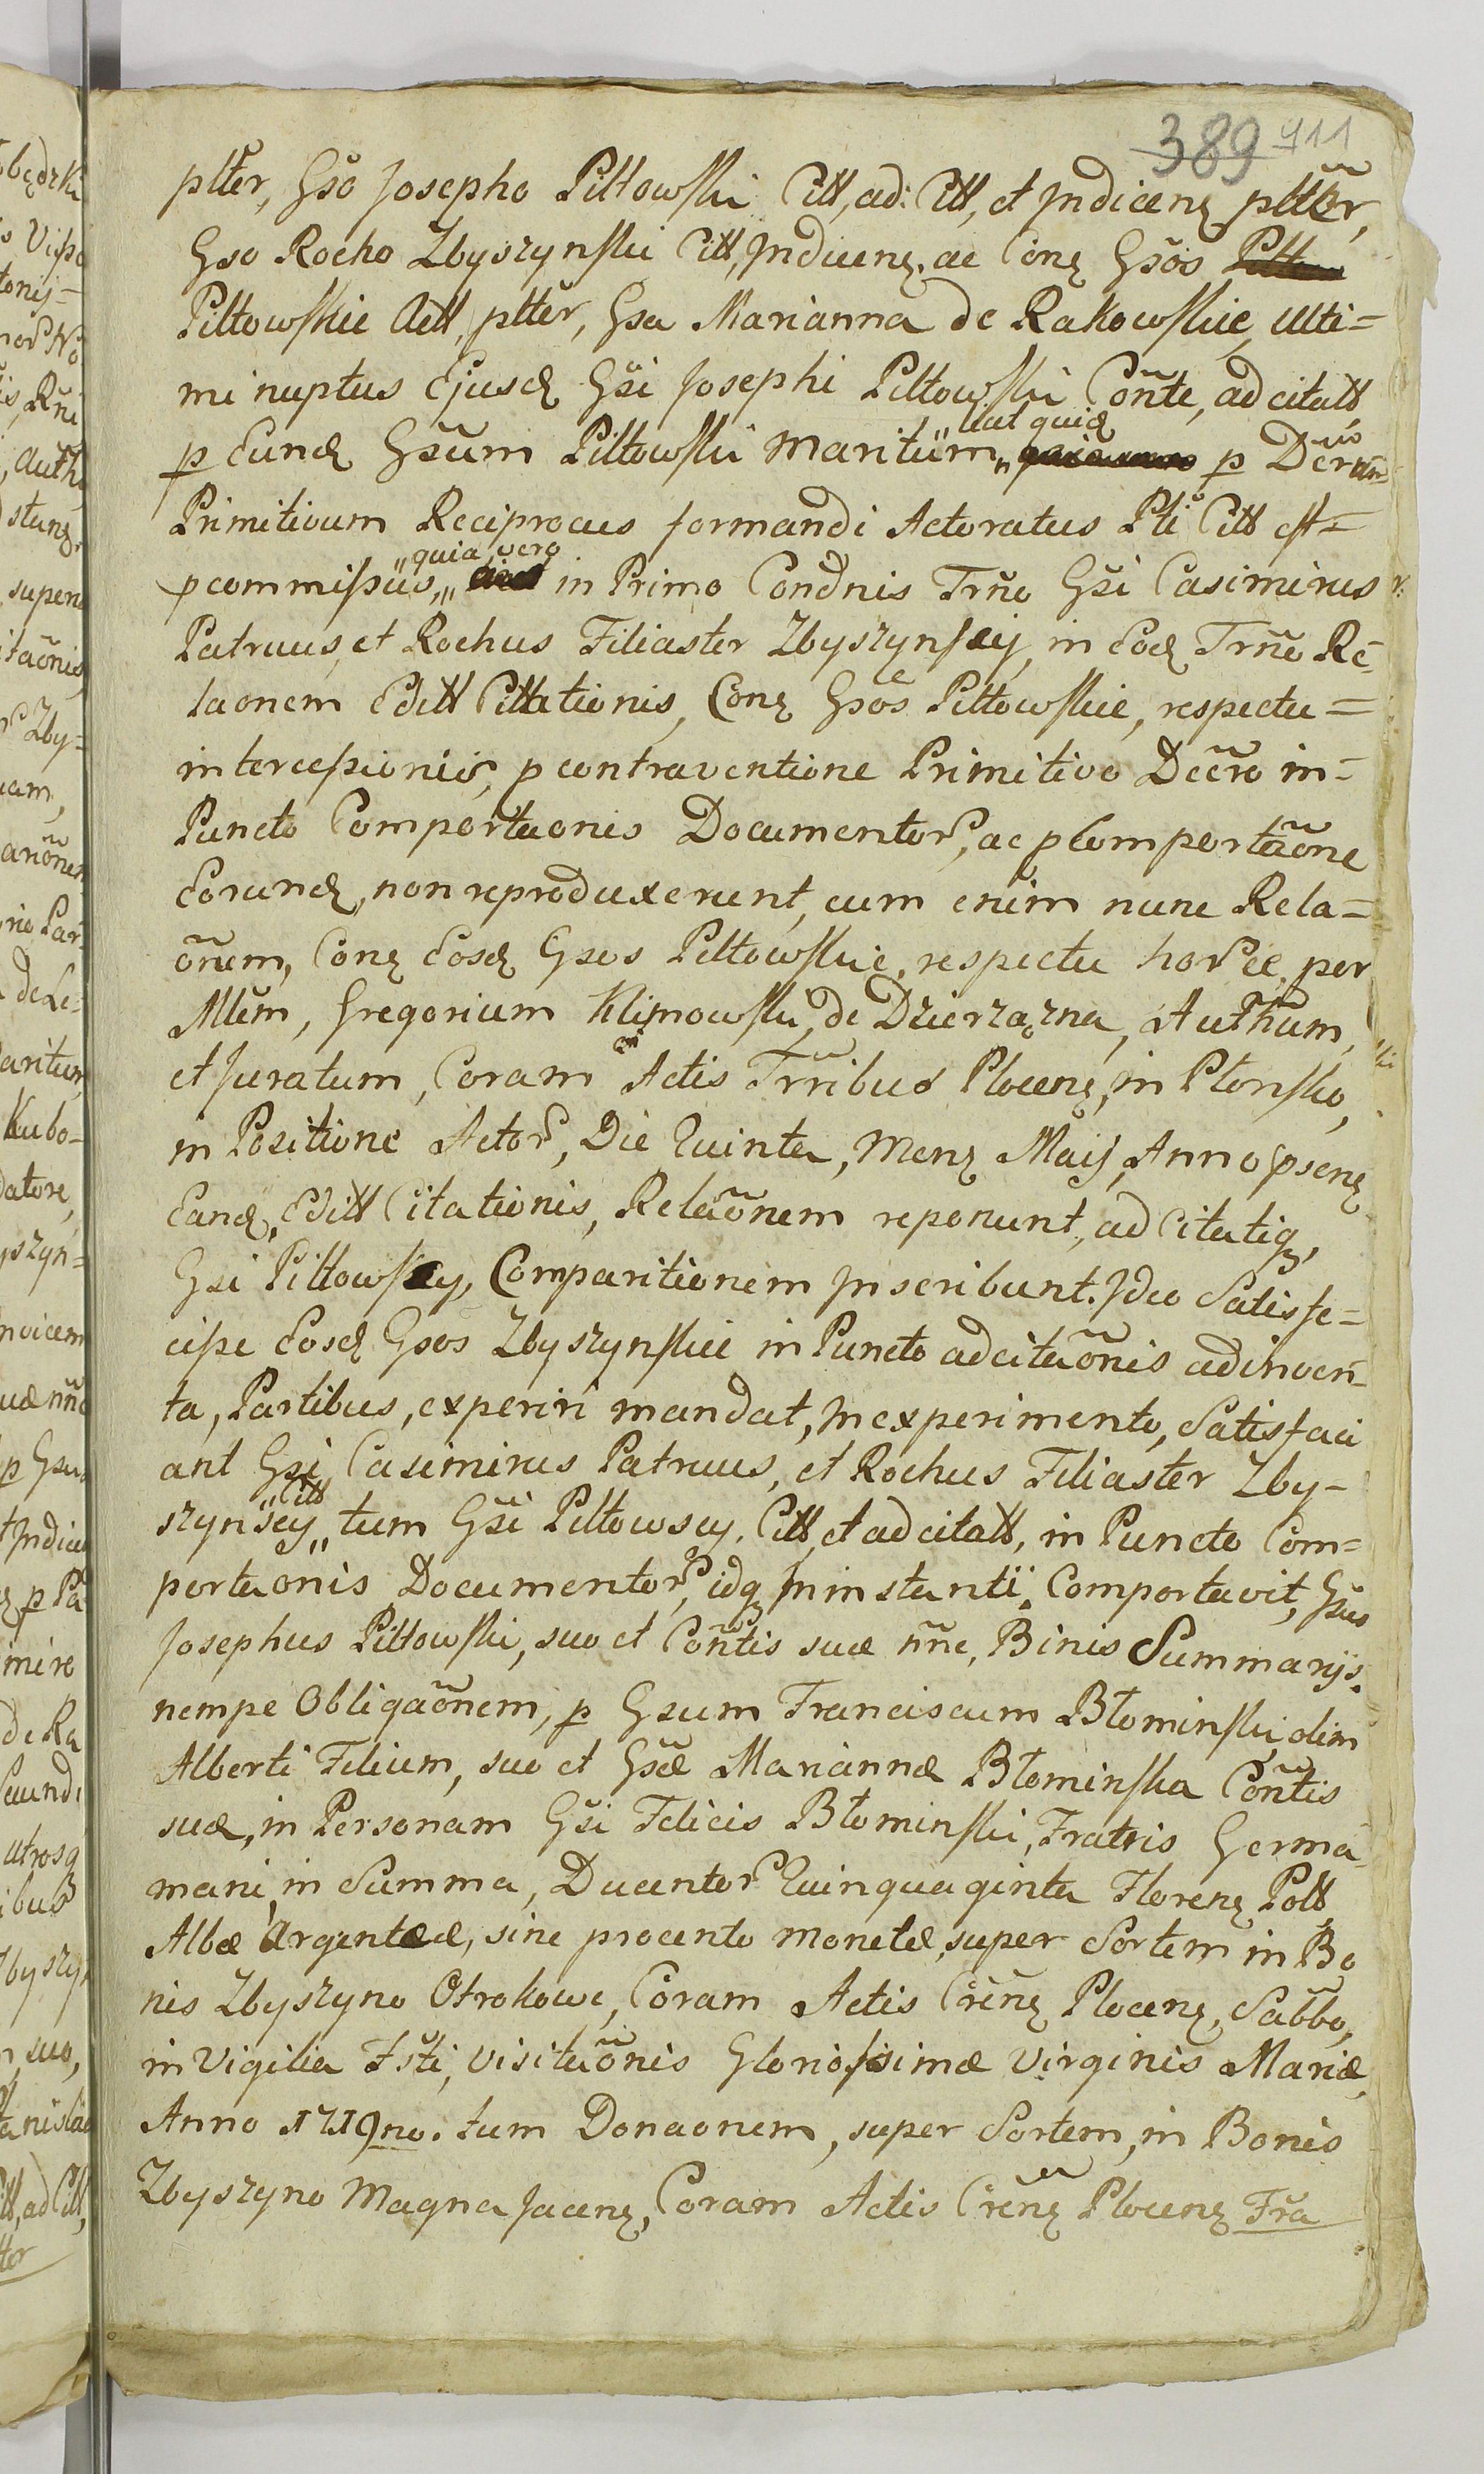 389 411
pltter, Gso Josepho Piltowski Citt, ad: Citt, et Indicenz pltter,
Gso Rocho Zbyszynski Citt, Indicenz, ac Conz Gsos
Piltowskie Actt, pltter, Gsa Marianna de Rakowskie, ulti=
mi nuptus Ejusd Gsi Josephi Piltowski Conte, ad citatt
p Eund Gsum Piltowski Maritum, uat quid p Decrum
Primitivum Reciprocus formandi Actoratus Pti Citt est=
p commissus, quia vero in Primo Condnis Trno Gsi Casimirus
Patruus, et Rochus Filiaster Zbyszynscy, in Eod Trno Re-
laonem Editt Cittationis, Conz Gsos Piltowskie, respectu=
intercessionis, p contraventione Primitivo Decro in=
Puncto Comportaonis Documentor, ac p Comportaone
Eorund, non reproduxerunt, cum enim nunc Rela=
onem, Conz Eosd Gsos Piltowskie, respectu horce per
Mlem, Gregorium Klimowski, de Dzierzązna, Authum,
et Juratum, Coram Actis Trribus Plocenz, in Płonsko,
in Positione Actor, Die Quinta, Menz Maij, Anno psenz
Eand, Editt Citationis, Relaonem reponunt, ad Citatiq,
Gsi Piltowscy, Comparitionem Inscribunt. Ideo Satisfe=
cisse Eosd Gsos Zbyszynskie in Puncto adcitaonis adinven-
ta, Partibus, experiri mandat, in experimento, Satisfaci
ant Gsi Casimirus Patruus, et Rochus Filiaster Zby-
szynscy, Citt tum Gsi Piltowscy, Citt et ad citatt, in Puncto Com=
portaonis Documentor, idq Ininstanti, Comportavit, Gsus
Josephus Piltowski, suo et Contis suae nne, Binis Summarijs,
nempe Obligaonem, p Gsum Franciscum Błominski olim
Alberti Filium, suo et Gsae Mariannae Błominska Contis
suae, in Personam Gsi Felicis Błominski, Fratris Germa-
mani, in Summa, Ducentor Quinquaginta Florenz Poll
Albae Argenteae, sine procento monetae, super Sortem in Bo
nis Zbyszyno Otrokowe, Coram Actis Crenz Plocenz, Sabbo,
in Vigilia Fsti, Visitaonis Gloriosissimae Virginis Mariae,
Anno 1719no. tum Donaonem, super Sortem, in Bonis
Zbyszyno Magna Jacenz, Coram Actis Crenz Plocenz Fra